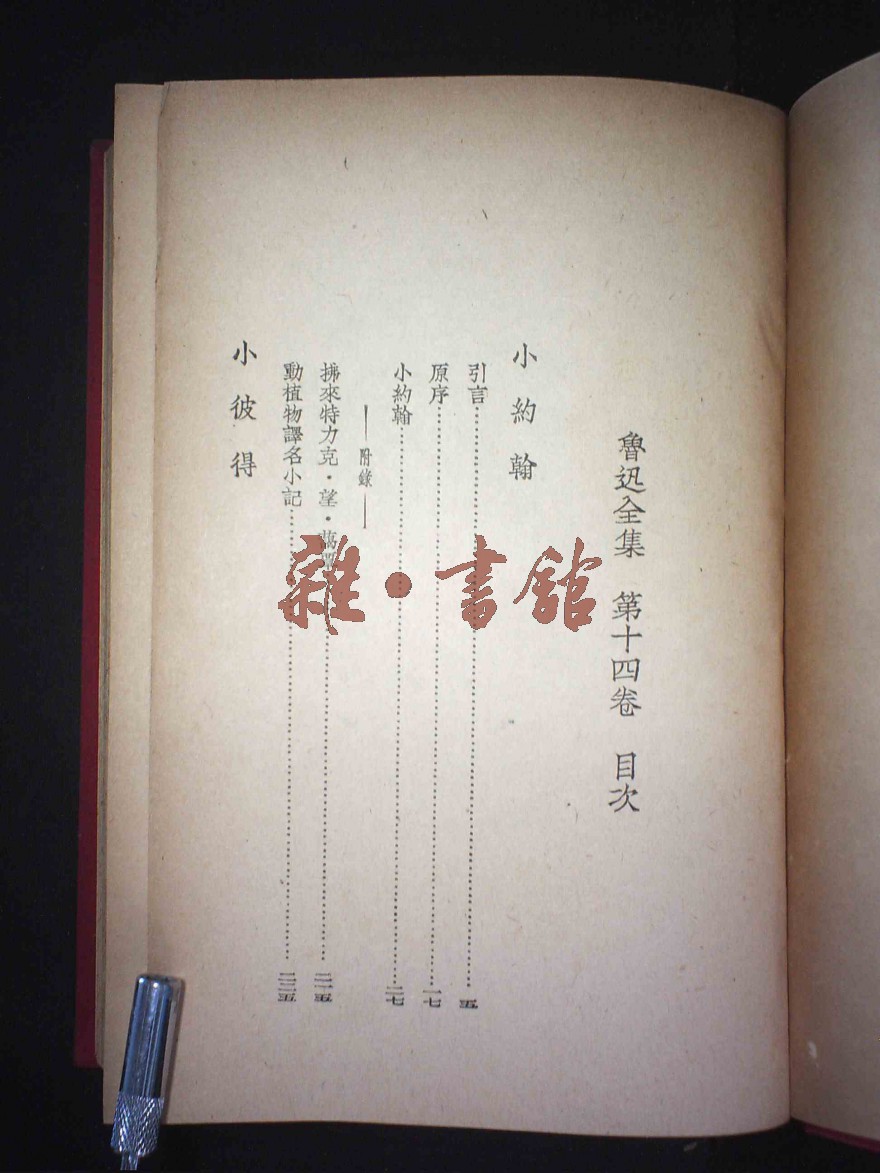 魯迅全集　第十四卷　目次
小約翰
引言…………五
原序…………一七
小約翰…………二七
——附錄——
拂來特力克·望·藹覃…………二一五
動植物譯名小記…………二二五
小彼得
雜·書館